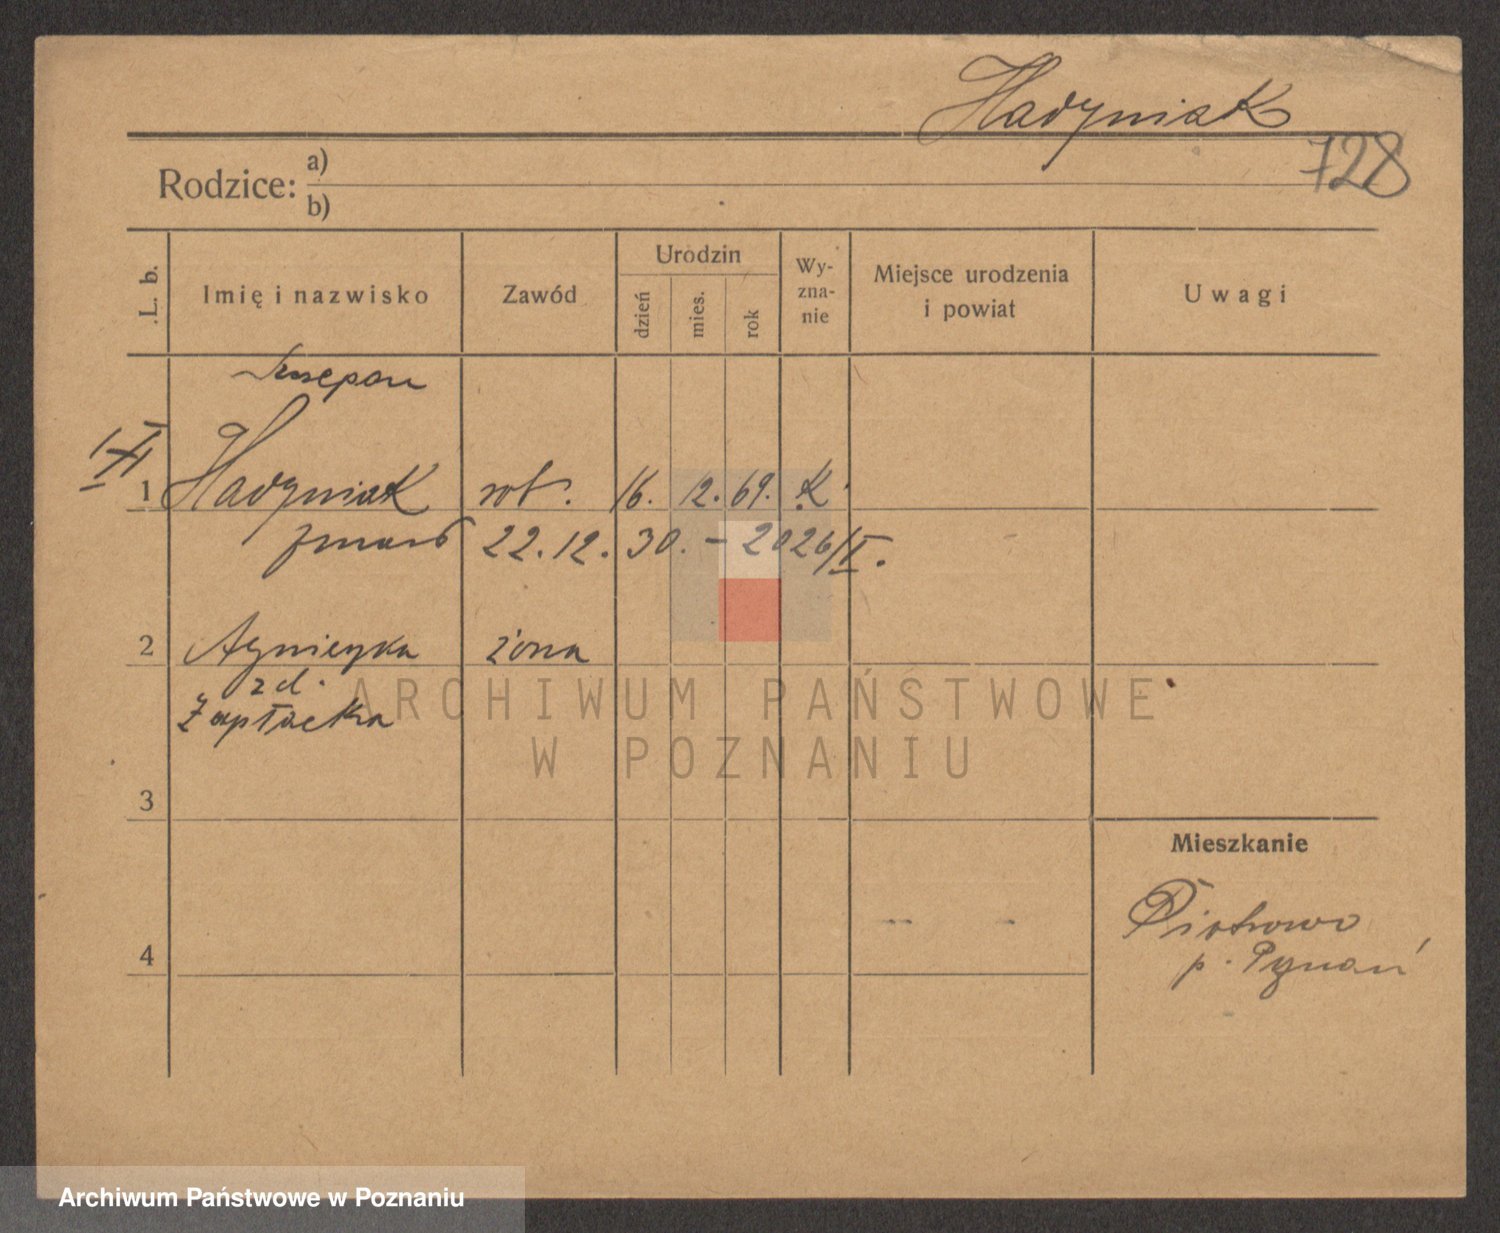 Hadyniak
728
Rodzice: a)
b)
L. b.
Imię i nazwisko
Zawód
Urodzin
dzień
mies.
rok
Wy-
zna-
nie
Miejsce urodzenia
i powiat
Uwagi
Szczepan
1 Hadyniak rob. 16. 12. 69. K.
zmarł 22.12.30. – 2026/I.
2 Agnieszka żona
zd.
Zapłacka
3
Mieszkanie
4
Piotrowo
p. Poznań
ARCHIWUM PAŃSTWOWE
W POZNANIU
Archiwum Państwowe w Poznaniu